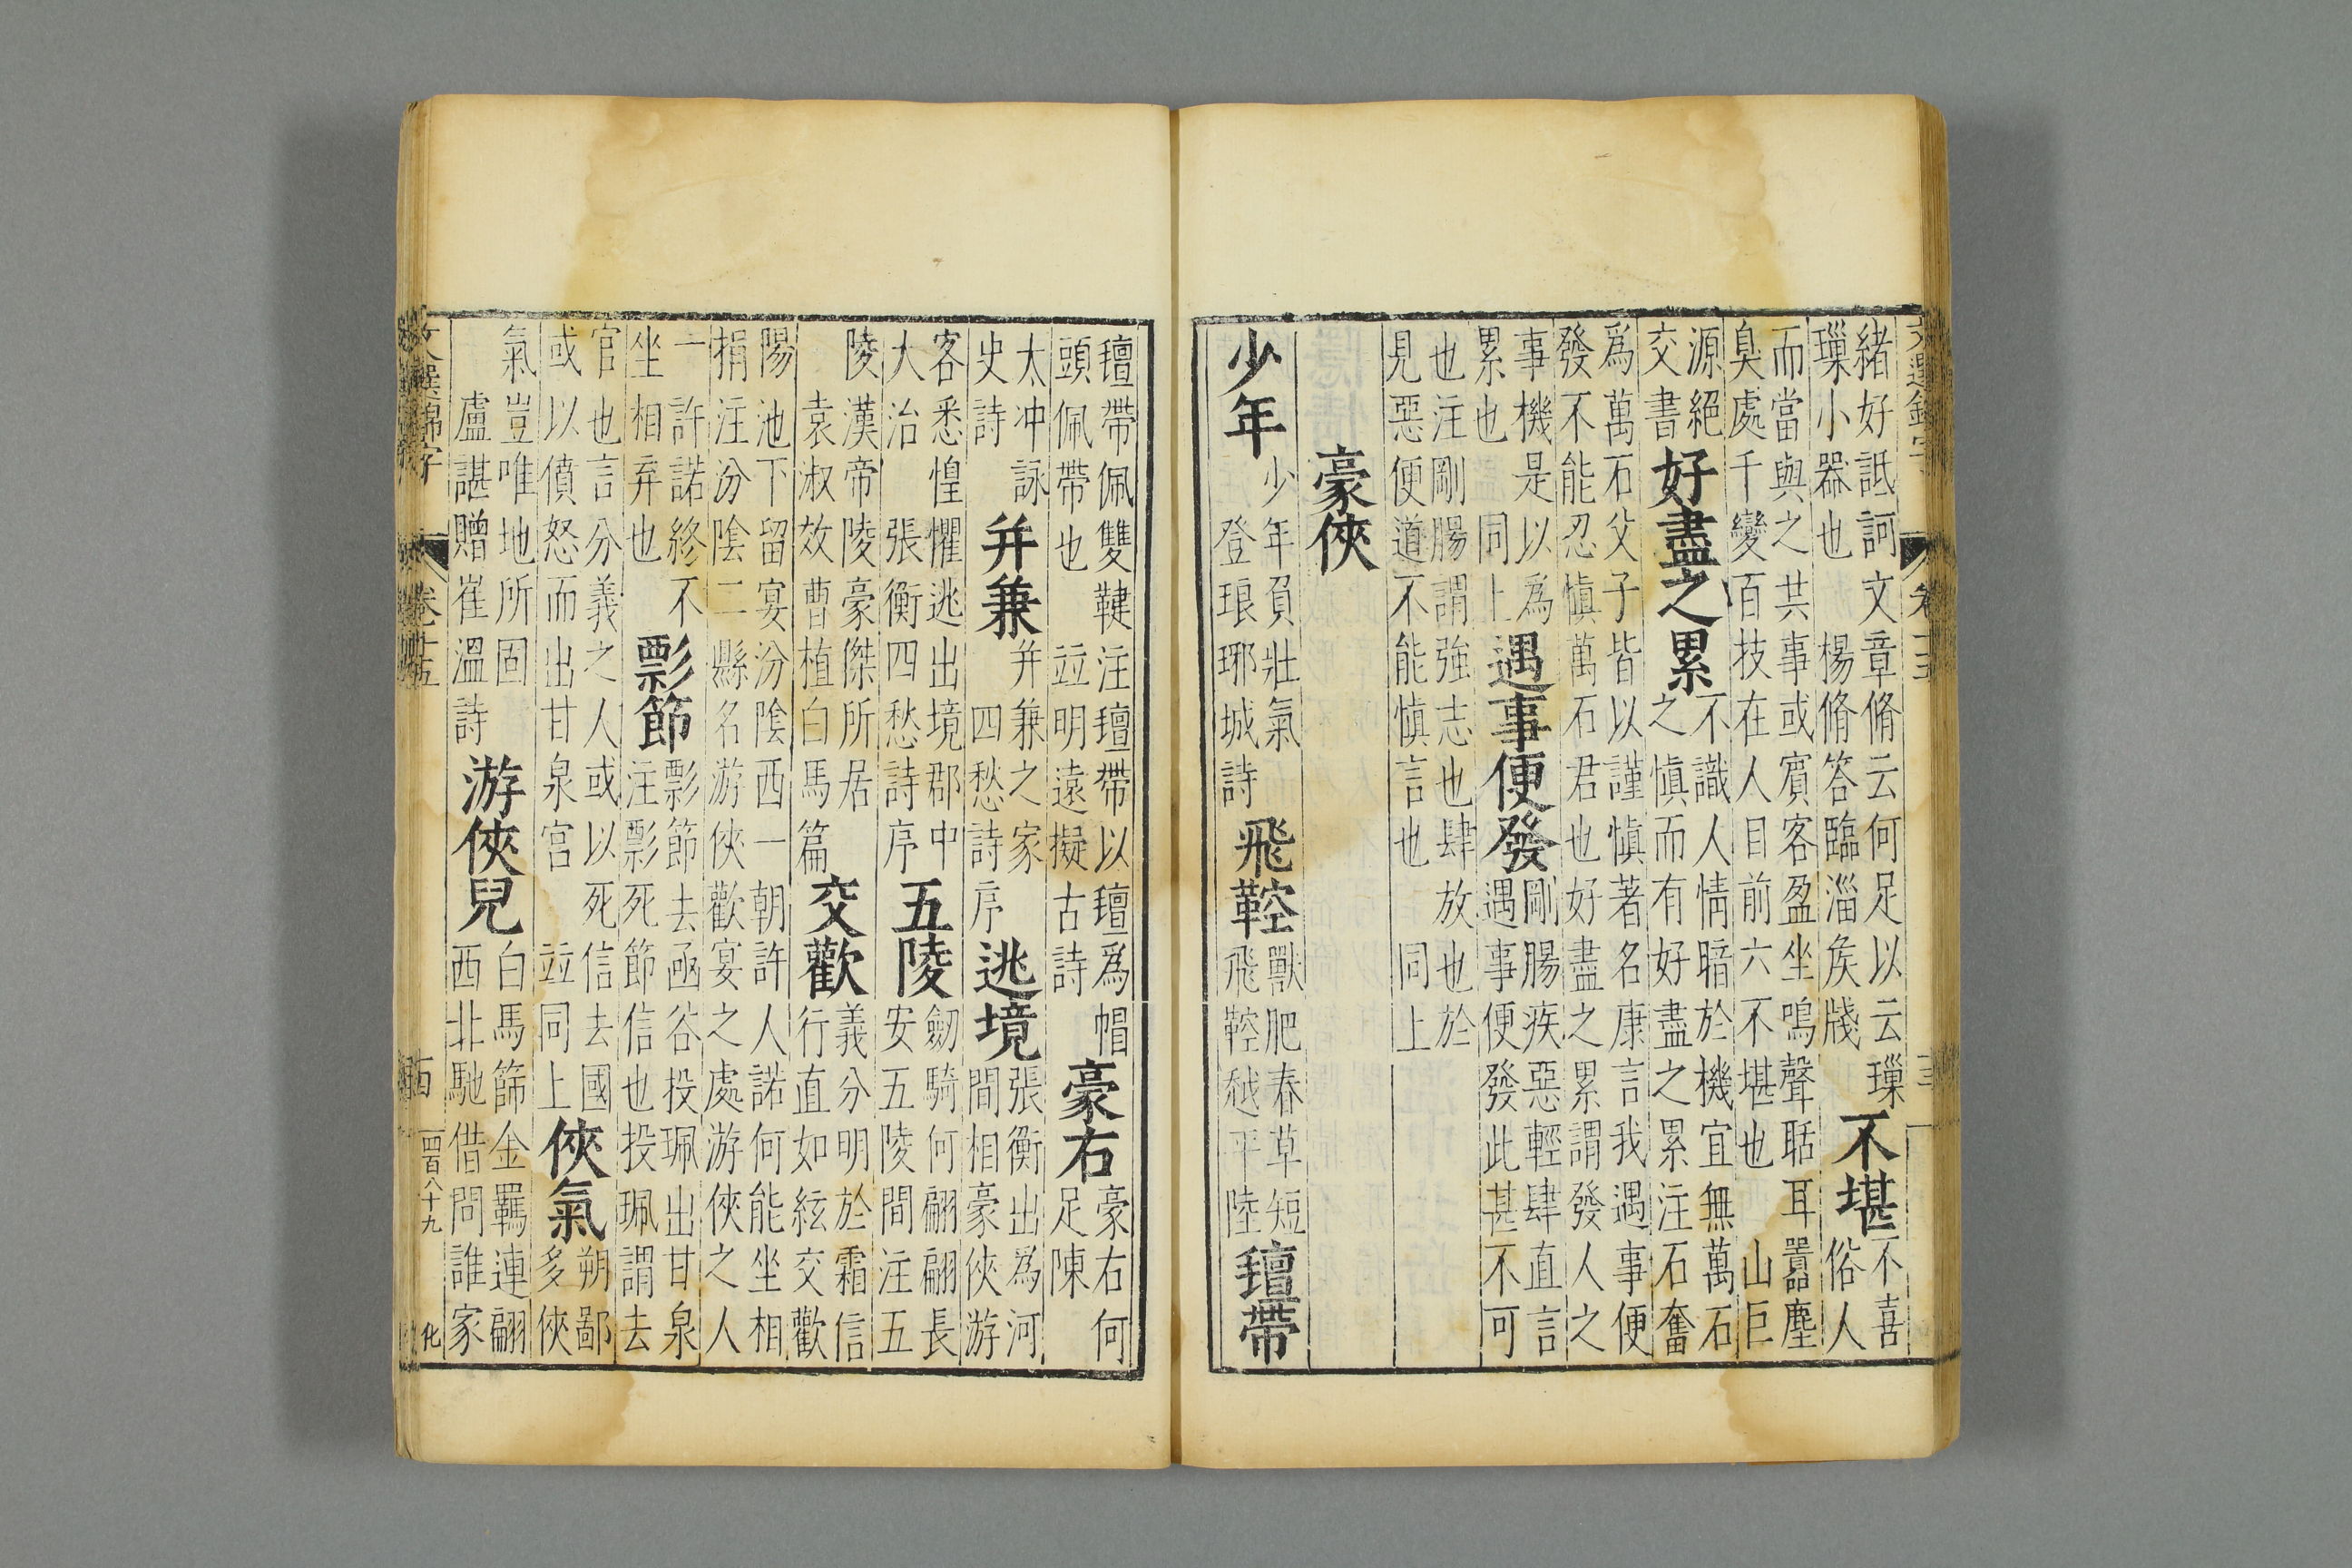 緒好詆訶文章脩云何足以云璅
璅小器也 楊脩答臨淄矦牋
不堪
不喜
俗人
而當與之共事或賓客盈坐鳴聲聒耳囂塵
臭處千變百技在人目前六不堪也 山巨
源絕
交書
好盡之累
不識人情暗於機宜無萬石
之慎而有好盡之累注石奮
爲萬石父子皆以謹愼著名康言我遇事便
發不能忍愼萬石君也好盡之累謂發人之
事機是以爲
累也 同上
遇事便發
剛腸疾惡輕肆直言
遇事便發此甚不可
也注剛腸謂強志也肆放也於
見惡便道不能愼言也 同上
豪俠
少年
少年負壯氣
登琅琊城詩
飛鞚
獸肥春草短
飛鞚越平陸
璮帶
璮帶佩雙鞬注璮帶以璮爲帽
頭佩帶也 竝明遠擬古詩
豪右
豪右何
足陳
太冲詠
史詩
并兼
并兼之家
四愁詩序
逃境
張衡出爲河
間相豪俠游
客悉惶懼逃出境郡中
大治 張衡四愁詩序
五陵
劒騎何翩翩長
安五陵間注五
陵漢帝陵豪傑所居
袁淑效曹植白馬篇
交歡
義分明於霜信
行直如絃交歡
陽池下留宴汾陰西一朝許人諾何能坐相
捐注汾陰二縣名游俠歡宴之處游俠之人
一許諾終不
坐相弃也
彯節
彯節去函谷投珮出甘泉
注彯死節信也投珮謂去
官也言分義之人或以死信去國
或以僨怒而出甘泉宮 竝同上
俠氣
朔鄙
多俠
氣豈唯地所固
盧諶贈崔溫詩
游俠兒
白馬篩金羈連翩
西北馳借問誰家
文選錦字 卷十五 十四 四百八十九 化